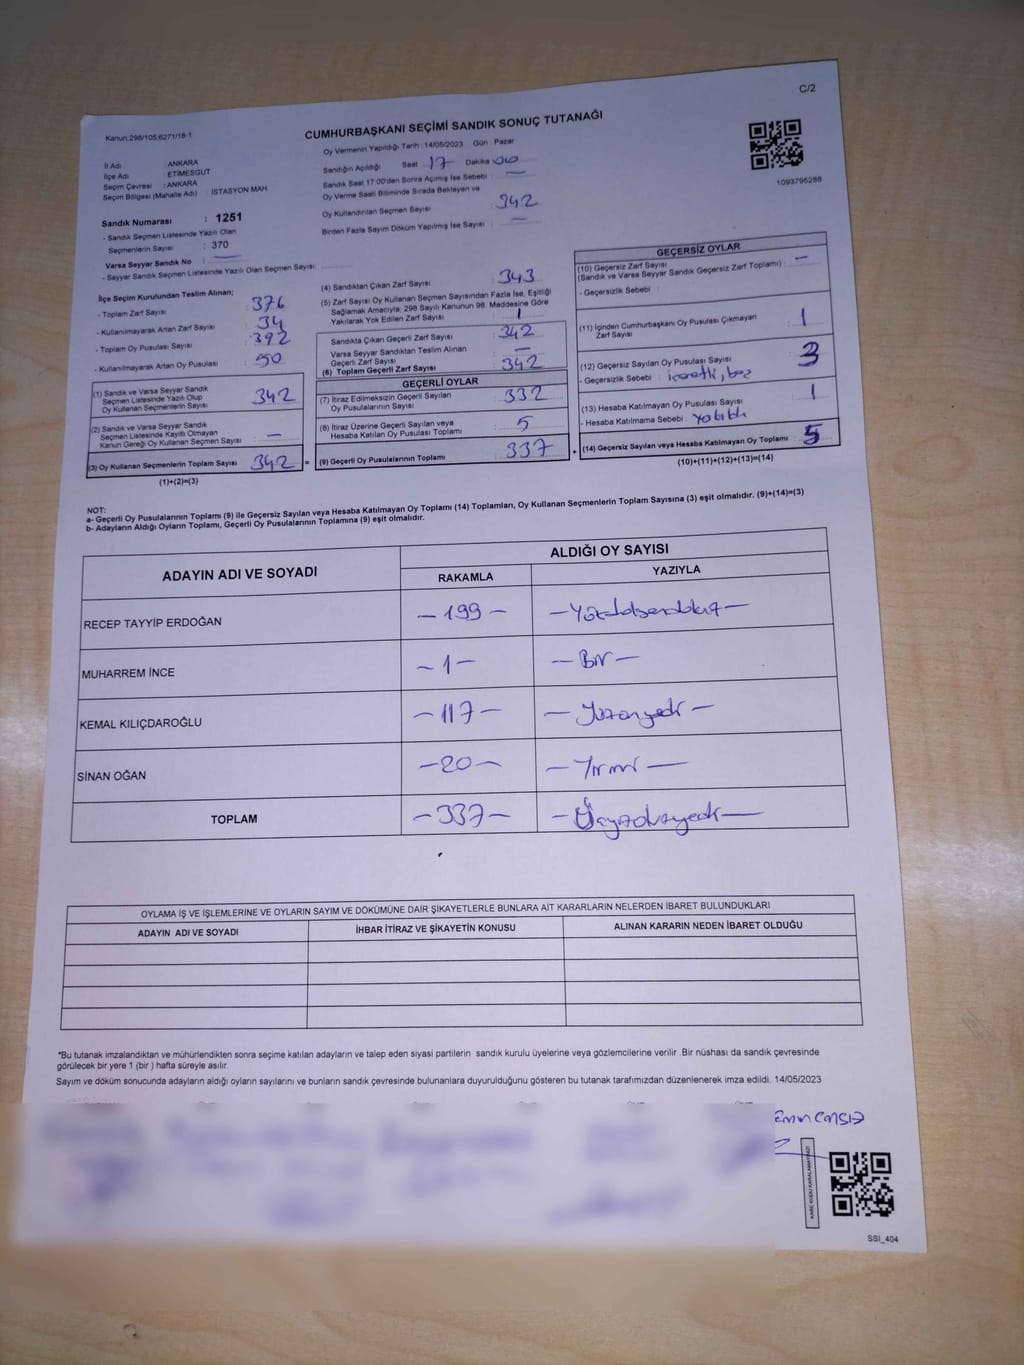 C/2
Kanun:298/105;6271/18-1
CUMHURBAŞKANI SEÇİMİ SANDIK SONUÇ TUTANAĞI
Oy Vermenin Yapıldığı Tarih :14/05/2023 Gün : Pazar
İl Adı : ANKARA
İlçe Adı : ETİMESGUT
Seçim Çevresi : ANKARA
Seçim Bölgesi (Mahalle Adı) : İSTASYON MAH.
Sandık Numarası : 1251
- Sandık Seçmen Listesinde Yazılı Olan
Seçmenlerin Sayısı : 370
Varsa Seyyar Sandık No : —
- Seyyar Sandık Seçmen Listesinde Yazılı Olan Seçmen Sayısı:
Sandığın Açıldığı Saat 17 Dakika 00
Sandık Saat 17:00'den Sonra Açılmış İse Sebebi : —
Oy Verme Saati Bitiminde Sırada Bekleyen ve
Oy Kullandırılan Seçmen Sayısı : 342
Birden Fazla Sayım Döküm Yapılmış İse Sayısı : —
1093795288
İlçe Seçim Kurulundan Teslim Alınan;
- Toplam Zarf Sayısı : 376
- Kullanılmayarak Artan Zarf Sayısı : 34
- Toplam Oy Pusulası Sayısı : 392
- Kullanılmayarak Artan Oy Pusulası : 50
(1) Sandık ve Varsa Seyyar Sandık
Seçmen Listesinde Yazılı Olup
Oy Kullanan Seçmenlerin Sayısı : 342
(2) Sandık ve Varsa Seyyar Sandık
Seçmen Listesinde Kayıtlı Olmayan
Kanun Gereği Oy Kullanan Seçmen Sayısı : —
(3) Oy Kullanan Seçmenlerin Toplam Sayısı : 342 =
(1)+(2)=(3)
(4) Sandıktan Çıkan Zarf Sayısı : 343
(5) Zarf Sayısı Oy Kullanan Seçmen Sayısından Fazla İse, Eşitliği
Sağlamak Amacıyla; 298 Sayılı Kanunun 98. Maddesine Göre
Yakılarak Yok Edilen Zarf Sayısı : 1
Sandıkta Çıkan Geçerli Zarf Sayısı : 342
Varsa Seyyar Sandıktan Teslim Alınan
Geçerli Zarf Sayısı : —
(6) Toplam Geçerli Zarf Sayısı : 342
GEÇERLİ OYLAR
(7) İtiraz Edilmeksizin Geçerli Sayılan
Oy Pusulalarının Sayısı : 332
(8) İtiraz Üzerine Geçerli Sayılan veya
Hesaba Katılan Oy Pusulası Toplamı : 5
(9) Geçerli Oy Pusulalarının Toplamı : 337 +
GEÇERSİZ OYLAR
(10) Geçersiz Zarf Sayısı
(Sandık ve Varsa Seyyar Sandık Geçersiz Zarf Toplamı) : —
- Geçersizlik Sebebi :
(11) İçinden Cumhurbaşkanı Oy Pusulası Çıkmayan
Zarf Sayısı : 1
(12) Geçersiz Sayılan Oy Pusulası Sayısı : 3
- Geçersizlik Sebebi : işaretli, boş
(13) Hesaba Katılmayan Oy Pusulası Sayısı : 1
- Hesaba Katılmama Sebebi : yakıldı
(14) Geçersiz Sayılan veya Hesaba Katılmayan Oy Toplamı : 5
(10)+(11)+(12)+(13)=(14)
NOT:
a- Geçerli Oy Pusulalarının Toplamı (9) ile Geçersiz Sayılan veya Hesaba Katılmayan Oy Toplamı (14) Toplamları, Oy Kullanan Seçmenlerin Toplam Sayısına (3) eşit olmalıdır. (9)+(14)=(3)
b- Adayların Aldığı Oyların Toplamı, Geçerli Oy Pusulalarının Toplamına (9) eşit olmalıdır.
ADAYIN ADI VE SOYADI
ALDIĞI OY SAYISI
RAKAMLA YAZIYLA
RECEP TAYYİP ERDOĞAN — 199 — — Yüzdoksandokuz —
MUHARREM İNCE — 1 — — Bir —
KEMAL KILIÇDAROĞLU — 117 — — Yüzonyedi —
SİNAN OĞAN — 20 — — Yirmi —
TOPLAM — 337 — — Üçyüzotuzyedi —
OYLAMA İŞ VE İŞLEMLERİNE VE OYLARIN SAYIM VE DÖKÜMÜNE DAİR ŞİKAYETLERLE BUNLARA AİT KARARLARIN NELERDEN İBARET BULUNDUKLARI
ADAYIN ADI VE SOYADI İHBAR İTİRAZ VE ŞİKAYETİN KONUSU ALINAN KARARIN NEDEN İBARET OLDUĞU
*Bu tutanak imzalandıktan ve mühürlendikten sonra seçime katılan adayların ve talep eden siyasi partilerin sandık kurulu üyelerine veya gözlemcilerine verilir .Bir nüshası da sandık çevresinde
görülecek bir yere 1 (bir ) hafta süreyle asılır.
Sayım ve döküm sonucunda adayların aldığı oyların sayılarını ve bunların sandık çevresinde bulunanlara duyurulduğunu gösteren bu tutanak tarafımızdan düzenlenerek imza edildi. 14/05/2023
KARE KODU KARALAMAYINIZ!
SSI_404